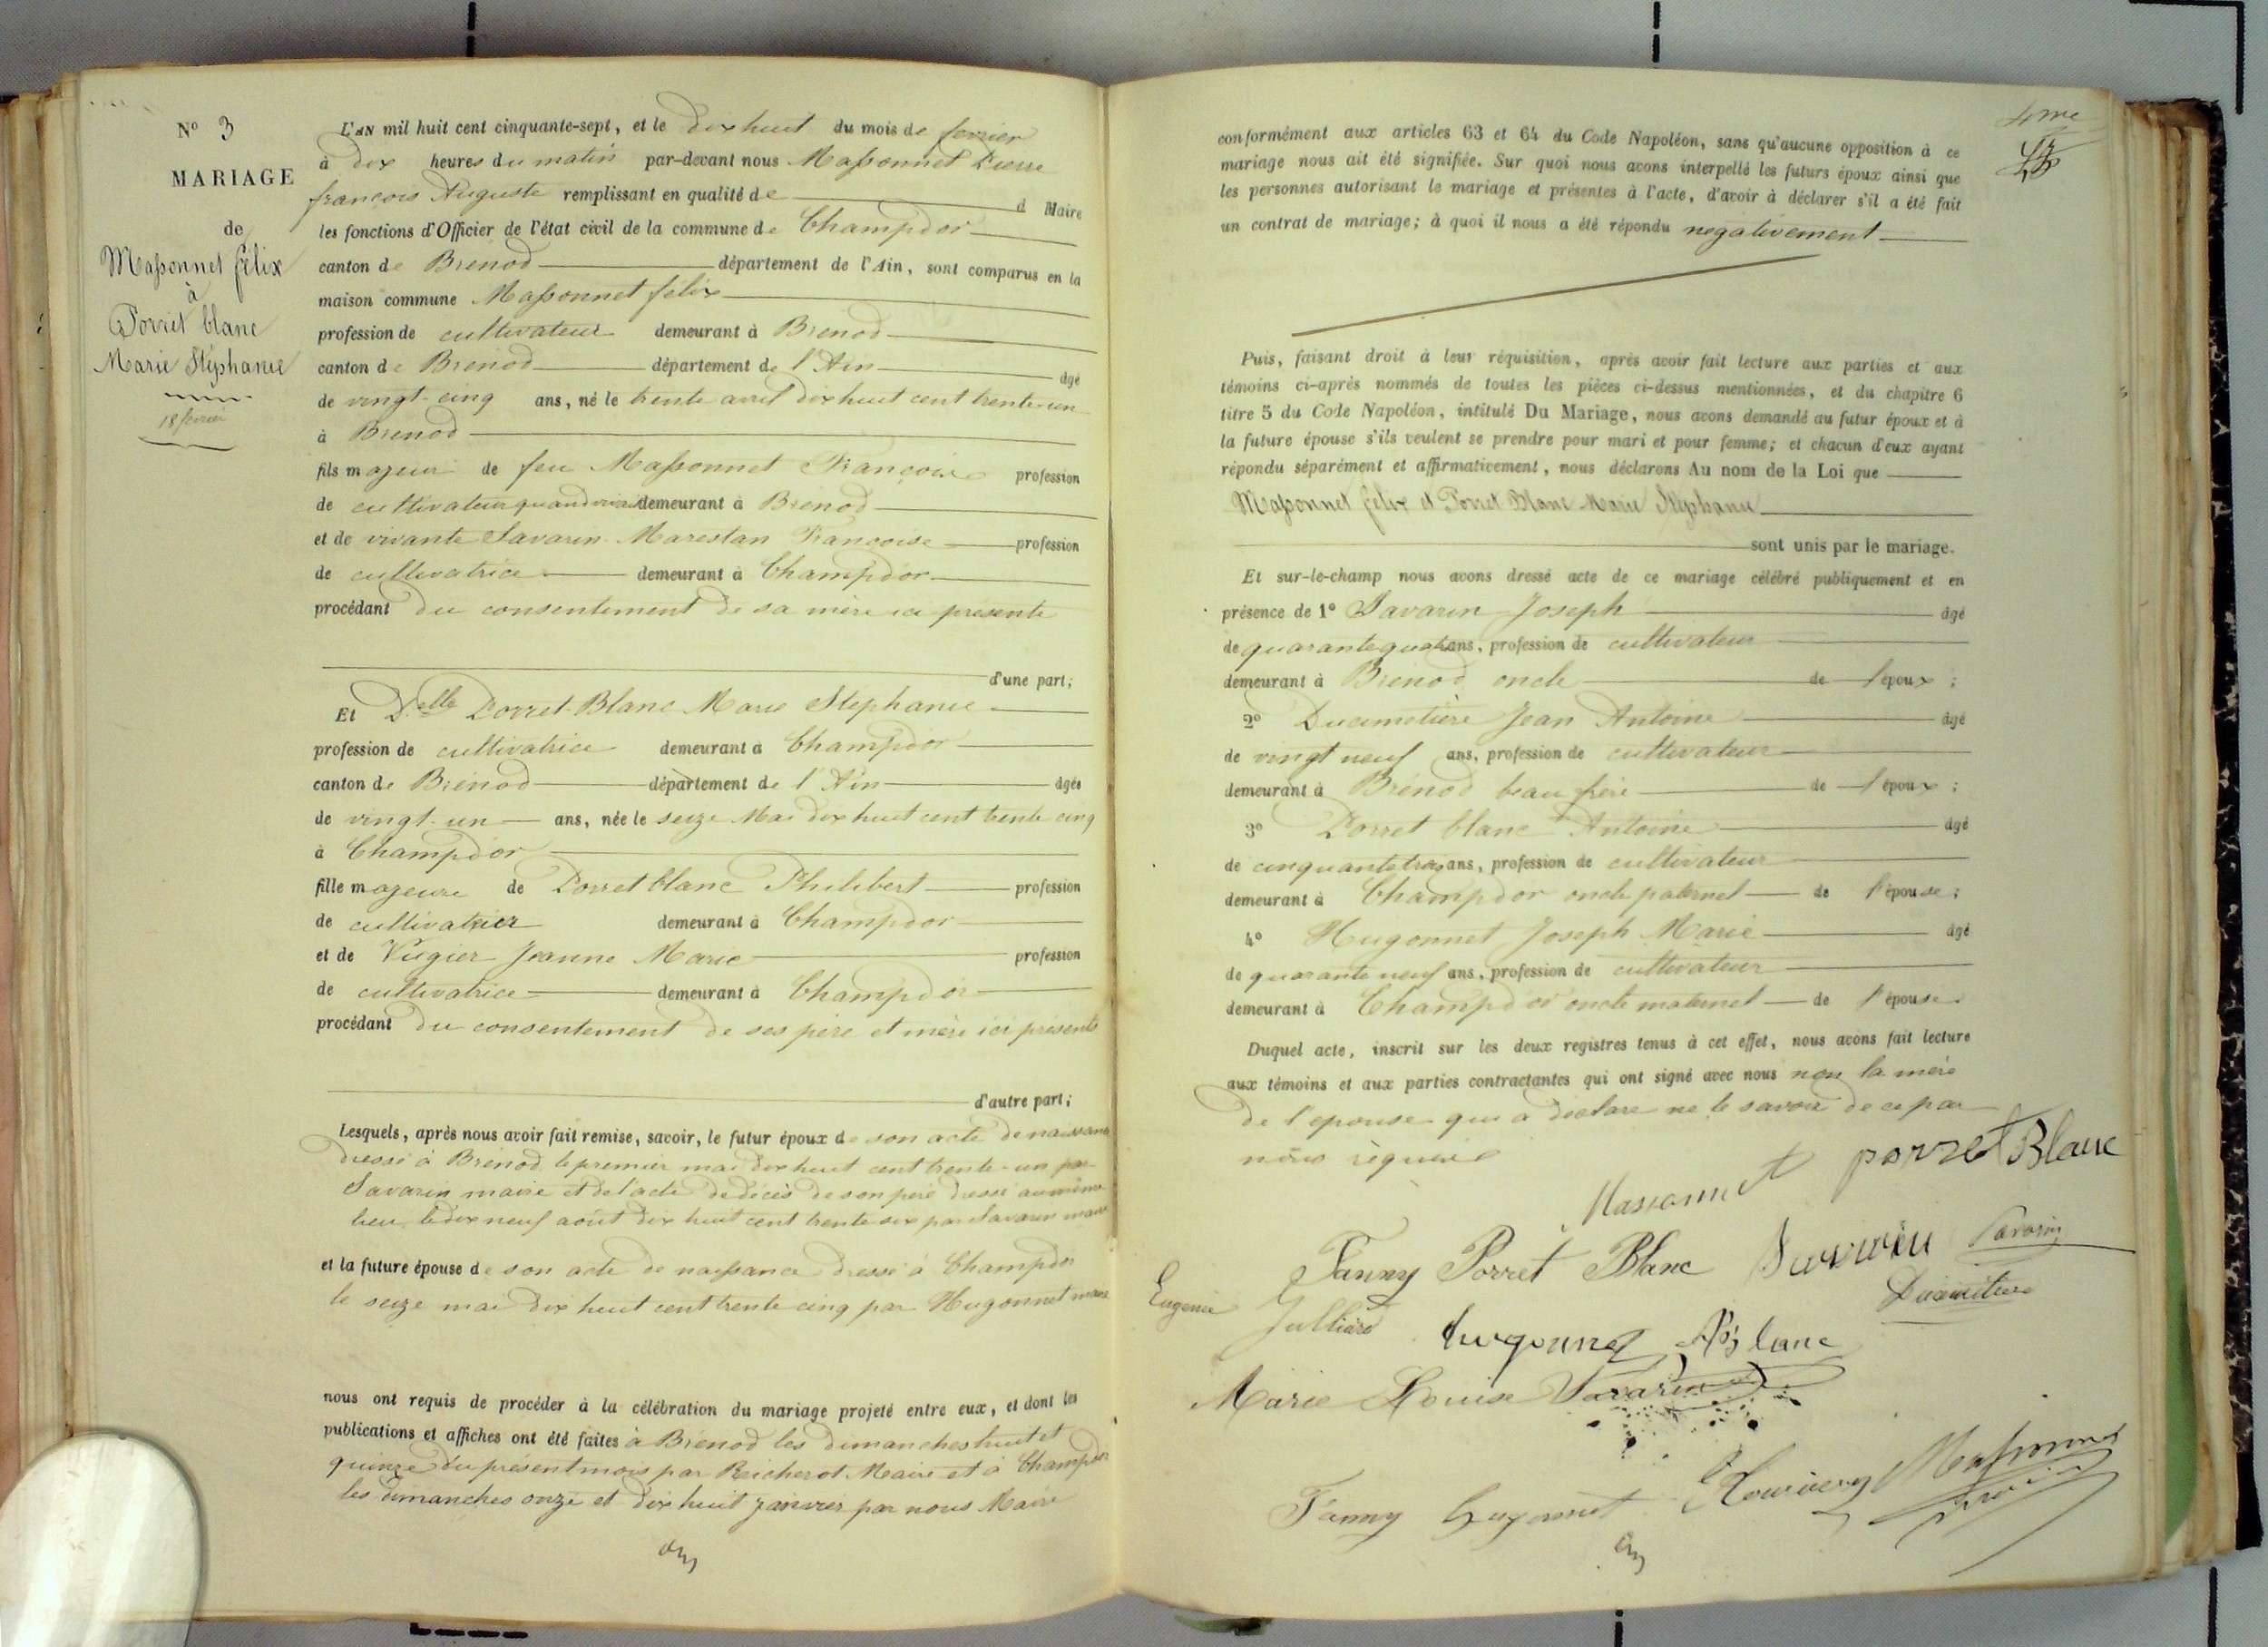 N° 3
MARIAGE
de
Massonnet félix
à
Porret blanc
Marie Stéphanie
18 février
L'AN mil huit cent cinquante-sept, et le dix huit du mois de fevrier
à dix heures du matin par-devant nous Massonnet Pierre
françois Auguste remplissant en qualité de d Maire
les fonctions d'Officier de l'état civil de la commune de Champdor
canton de Brénod département de l'Ain, sont comparus en la
maison commune Massonnet félix
profession de cultivateur demeurant à Brénod
canton de Brénod département de l'Ain âgé
de vingt-cinq ans, né le trente avril dix huit cent trente-un
à Brenod
fils majeur de feu Massonnet François profession
de cultivateur quand vivait demeurant à Brenod
et de vivante Savarin Marestan Françoise profession
de cultivatrice demeurant à Champdor
procédant du consentement de sa mère ici présente
d'une part;
Et Delle Porret-Blanc Marie Stéphanie
profession de cultivatrice demeurant à Champdor
canton de Brénod département de l'Ain âgée
de vingt-un ans, née le seize Mai dix huit cent trente cinq
à Champdor
fille majeure de Porret blanc Philibert profession
de cultivateur demeurant à Champdor
et de Vugier Jeanne Marie profession
de cultivatrice demeurant à Champdor
procédant du consentement de ses père et mère ici présents
d'autre part;
Lesquels, après nous avoir fait remise, savoir, le futur époux de son acte de naissance
dressé à Brénod le premier mai dix huit cent trente-un par
Savarin maire et de l'acte de décès de son père dressé au même
lieu, le dix neuf août dix huit cent trente six par Savarin maire
et la future épouse de son acte de naissance dressé à Champdor
le seize mai dix huit cent trente cinq par Hugonnet maire
nous ont requis de procéder à la célébration du mariage projeté entre eux, et dont les
publications et affiches ont été faites à Brénod les dimanches huit et
quinze du présent mois par Reicherot Maire et à Champdor
les dimanches onze et dix huit janvier par nous Maire
4me
conformément aux articles 63 et 64 du Code Napoléon, sans qu'aucune opposition à ce
mariage nous ait été signifiée. Sur quoi nous avons interpellé les futurs époux ainsi que
les personnes autorisant le mariage et présentes à l'acte, d'avoir à déclarer s'il a été fait
un contrat de mariage; à quoi il nous a été répondu negativement
Puis, faisant droit à leur réquisition, après avoir fait lecture aux parties et aux
témoins ci-après nommés de toutes les pièces ci-dessus mentionnées, et du chapitre 6
titre 5 du Code Napoléon, intitulé Du Mariage, nous avons demandé au futur époux et à
la future épouse s'ils veulent se prendre pour mari et pour femme; et chacun d'eux ayant
répondu séparément et affirmativement, nous déclarons Au nom de la Loi que
Massonnet félix et Porret Blanc Marie Stéphanie
sont unis par le mariage.
Et sur-le-champ nous avons dressé acte de ce mariage célébré publiquement et en
présence de 1° Savarin Joseph âgé
de quarante quatre ans, profession de cultivateur
demeurant à Brenod oncle de l'époux;
2° Ducimetière Jean Antoine âgé
de vingt neuf ans, profession de cultivateur
demeurant à Brénod beau frère de l'époux;
3° Porret blanc Antoine âgé
de cinquante trois ans, profession de cultivateur
demeurant à Champdor oncle paternel de l'épouse;
4° Hugonnet Joseph Marie âgé
de quarante neuf ans, profession de cultivateur
demeurant à Champdor oncle maternel de l'épouse
Duquel acte, inscrit sur les deux registres tenus à cet effet, nous avons fait lecture
aux témoins et aux parties contractantes qui ont signé avec nous non la mère
de l'epouse qui a déclaré ne le savoir de ce par
nous requise
Massonnet porret Blanc
Fanny Porret Blanc Savarin Savarin
Eugenie Jullierd Ducimetiere
hugonnet Pt blanc
Marie Louise Savarin
Fanny Hugonnet Massonnet